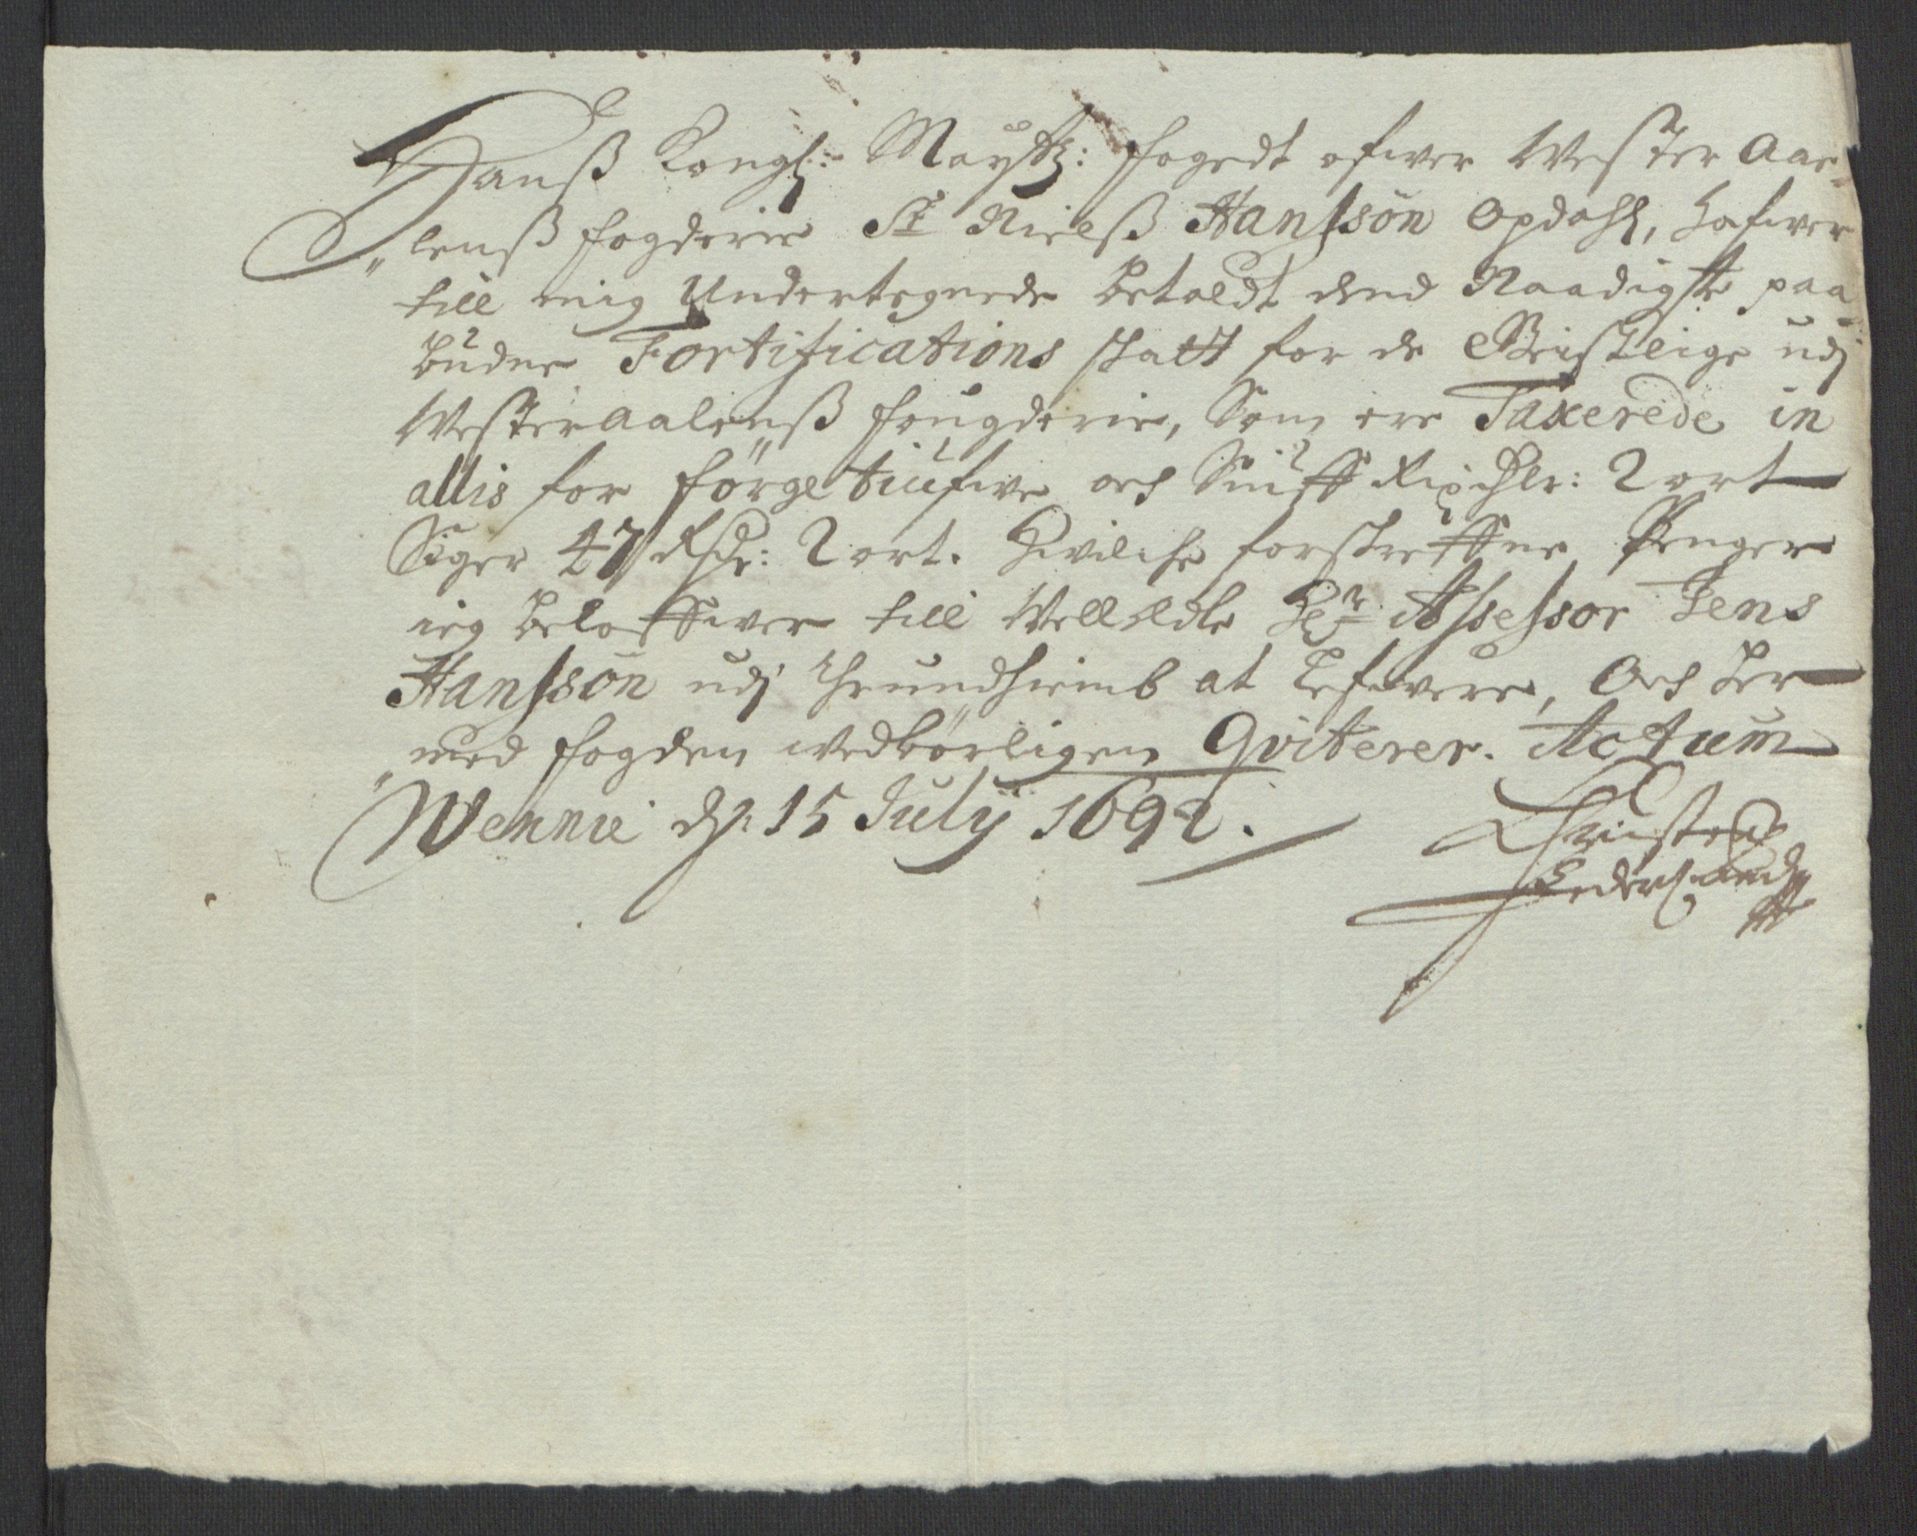 Hanß Kongl: Maystz: fogedt ofwer Wester Aae„
„lenß fogderie Sr Nielß Hanssøn Opdahl, hafwer
till mig Undertegnede betaldt dend Naadigste paa„
budne Fortifications skatt for de Geistlige udj
Westeraalenß fougderie, Som ere Taxerede in
allis forførgetiufwe och Siuff Rixdlr: 2 ort
Siger 47 Rdr: 2 ort. Hvilche forskreffne Penger
ieg beloffwer till Velædle Hr Assessor Jens
Hanssøn udj Thrundhiemb at Lefwere, Och her„
„med fogden wedbørligen Qviterer. Actum
Wennie dh: 15 July 1692.
Christen